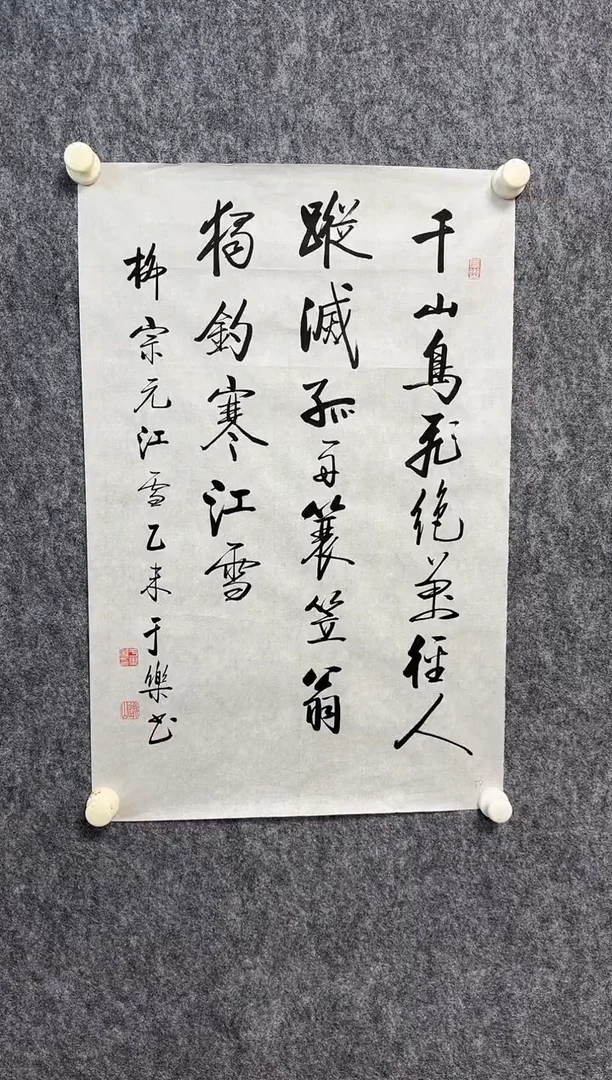 千山鳥飛絶萬徑人
蹤滅孤舟簑笠翁
獨釣寒江雪
柳宗元江雪乙未于樂书